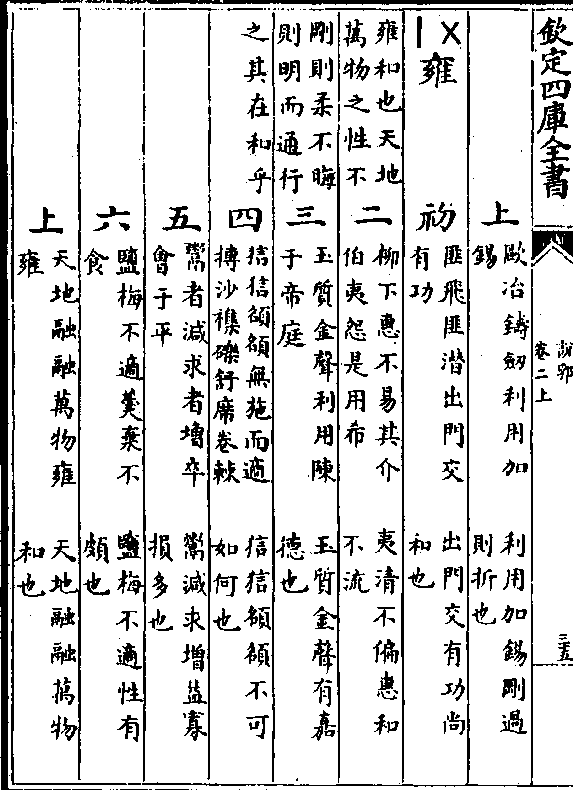 欽定四庫全書
說郛
卷二上
三五
上
歐冶鑄劒利用加
錫
利用加錫剛過
則折也
雍
初
匪飛匪潛出門交
有功
出門交有功尚
和也
雍和也天地
萬物之性不
二
柳下惠不易其介
伯夷怨是用希
夷清不偏惠和
不流
剛則柔不晦
則明而通行
三
玉質金聲利用陳
于帝庭
玉質金聲有嘉
德也
之其在和乎
四
信信額額無施而適
摶沙襍礫舒席卷棘
信信額額不可
如何也
五
鬻者減求者增卒
會于平
鬻減求增益寡
損多也
六
鹽梅不適羮棄不
食
鹽梅不適性有
頗也
上
天地融融萬物雍
雍
天地融融萬物
和也